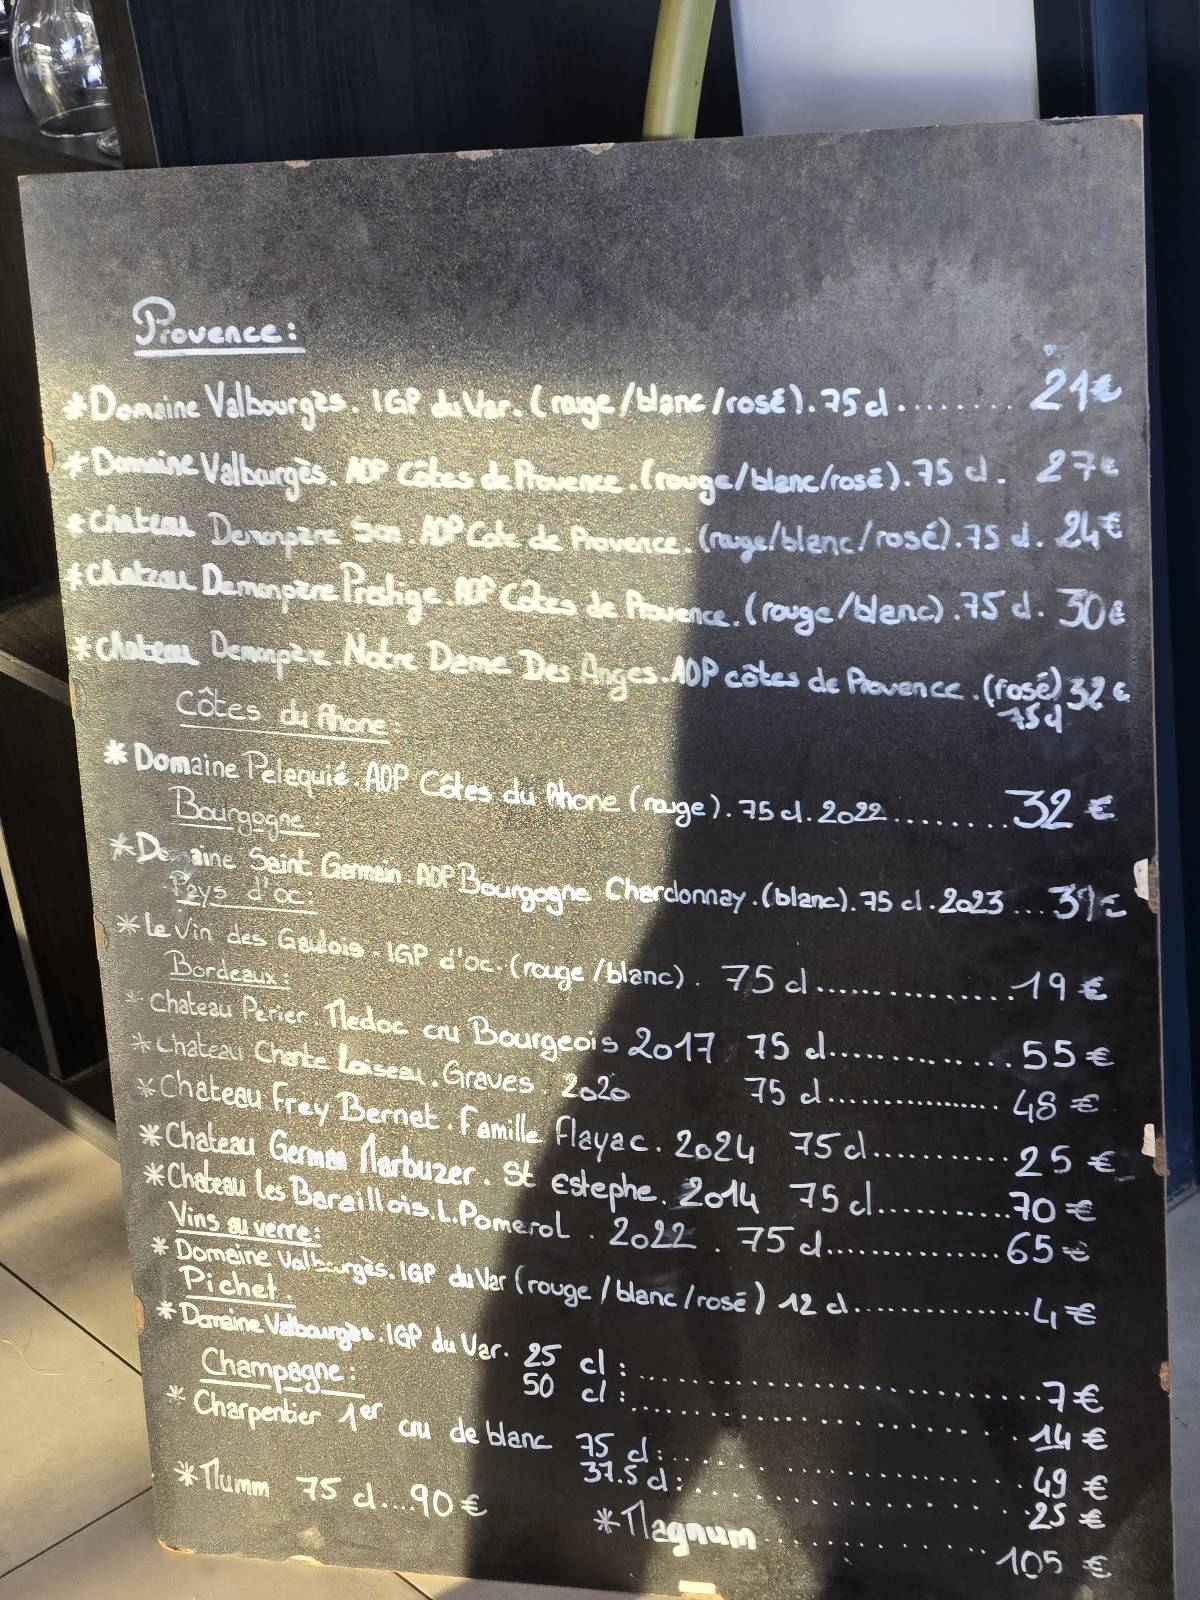 Provence:
*Domaine Valbourgès. IGP du Var. (rouge/blanc/rosé). 75 cl ........ 21€
*Domaine Valbourgès. AOP Côtes de Provence. (rouge/blanc/rosé). 75 cl. 27€
*Chateau Demonpère Son. AOP Côte de Provence. (rouge/blanc/rosé). 75 cl. 24€
*Chateau Demonpère Prestige. AOP Côtes de Provence. (rouge/blanc). 75 cl. 30€
*Chateau Demonpère Notre Dame Des Anges. AOP côtes de Provence. (rosé) 32€
75cl
Côtes du Rhone:
*Domaine Pelaquié. AOP Côtes du Rhone (rouge). 75 cl. 2022 ........ 32€
Bourgogne:
*Domaine Saint Germain AOP Bourgogne Chardonnay. (blanc). 75 cl. 2023 ...
Pays d'oc:
*Le Vin des Gaulois. IGP d'oc. (rouge/blanc). 75 cl ........ 19€
Bordeaux:
*Chateau Perier. Medoc cru Bourgeois 2017 75 cl ........ 55€
*Chateau Chante Loiseau. Graves. 2020 75 cl ........ 48€
*Chateau Frey Bernet. Famille Flayac. 2024 75 cl ........ 25€
*Chateau German Marbuzer. St Estephe. 2014 75 cl ........ 70€
*Chateau les Baraillois. L. Pomerol. 2022. 75 cl ........ 65€
Vins au verre:
*Domaine Valbourgès. IGP du Var (rouge/blanc/rosé) 12 cl ........ 4€
Pichet:
*Domaine Valbourgès. IGP du Var. 25 cl: ........ 7€
50 cl: ........ 14€
Champagne:
*Charpentier 1er cru de blanc 75 cl: ........ 49€
37.5 cl: ........ 25€
*Mumm 75 cl .... 90€ *Magnum ........ 105€